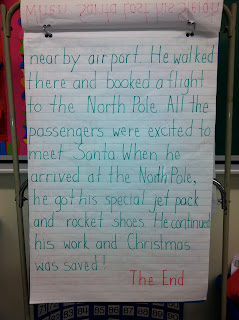 nearby airport. He walked
there and booked a flight
to the North Pole. All the
passengers were excited to
meet Santa. When he
arrived at the North Pole,
he got his special jet pack
and rocket shoes. He continued
his work and Christmas
was saved!
The End